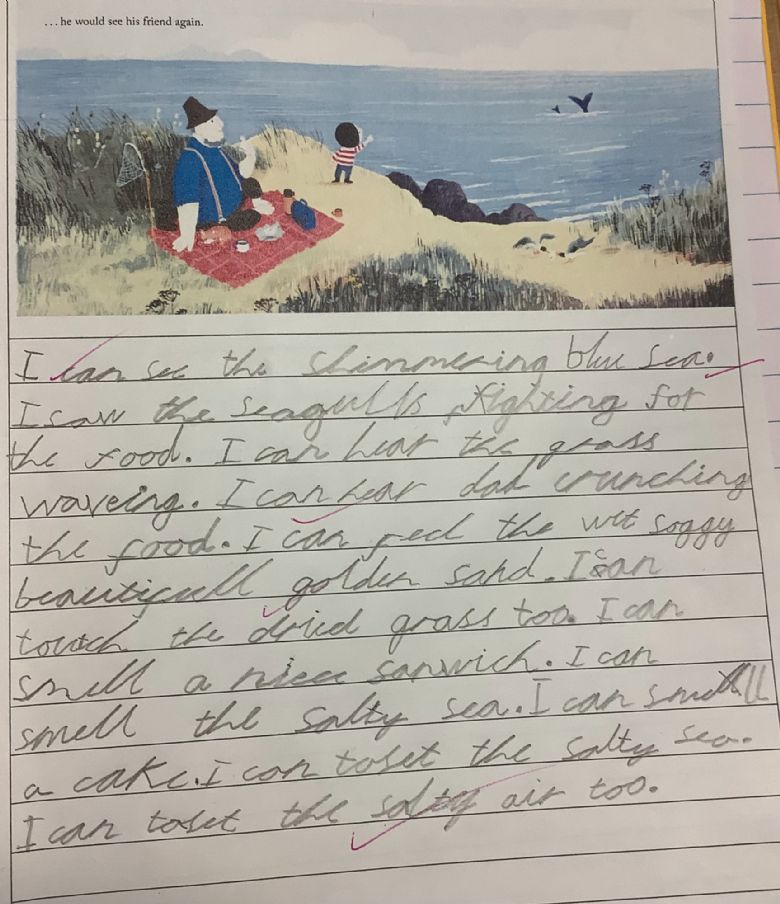 ...he would see his friend again.
I can see the shimmering blue sea.
I saw the seagulls fighting for
the food. I can hear the grass
waveing. I can hear dad crunching
the food. I can feel the wet soggy
beautifull golden sand. I can
touch the dried grass too. I can
smell a niece sanwich. I can
smell the salty sea. I can smell
a cake. I can toset the salty sea.
I can toset the salty air too.